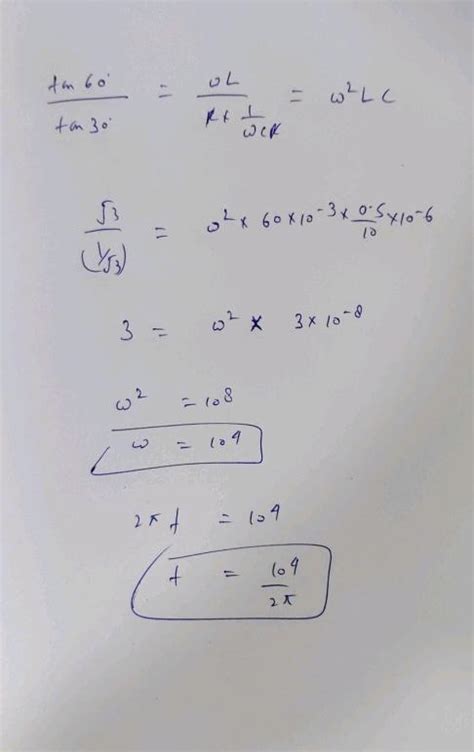 tan 60° / tan 30° = ωL / (R × 1/(ωCR)) = ω² L C
√3 / (1/√3) = ω² × 60 × 10⁻³ × 0.5/10 × 10⁻⁶
3 = ω² × 3 × 10⁻⁸
ω² = 10⁸
ω = 10⁴
2π f = 10⁴
f = 10⁴ / 2π